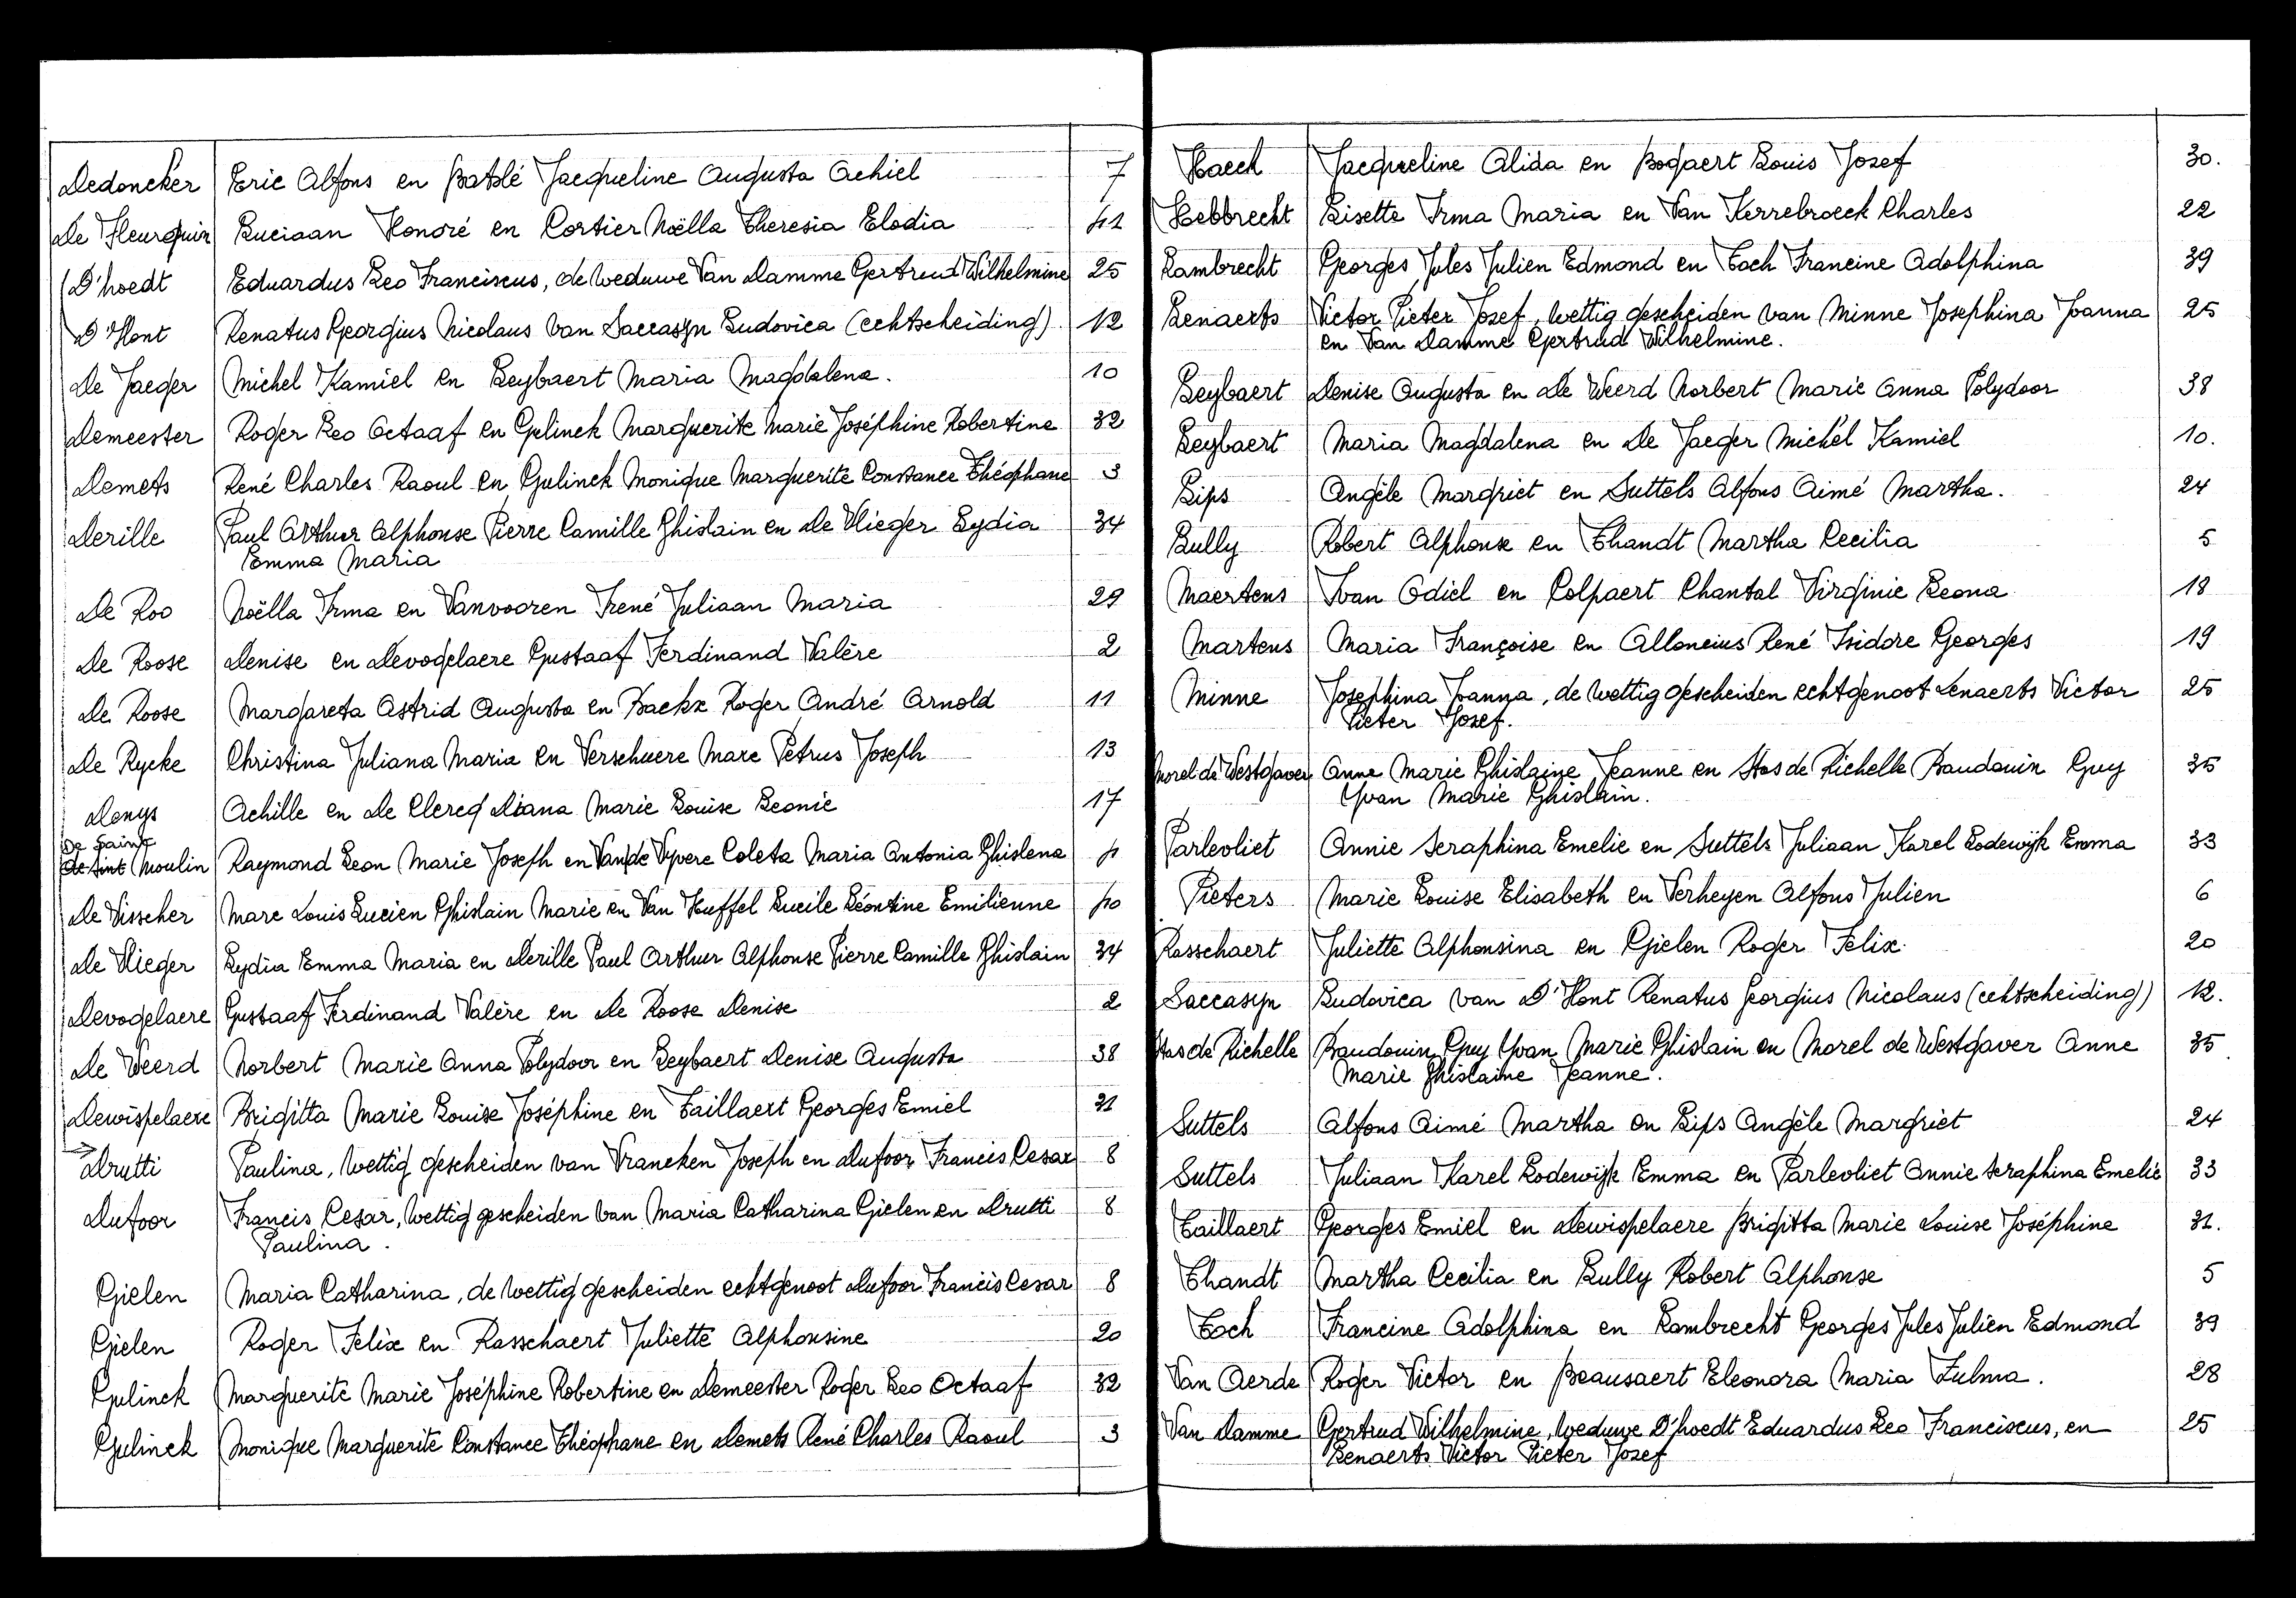 Dedoncker Eric Alfons en Batslé Jacqueline Augusta Achiel 7
De Fleurquin Luciaan Honoré en Cortier Noëlla Theresia Elodia 41
D'hoedt Eduardus Leo Franciscus, de weduwe Van Damme Gertrud Wilhelmine 25
D'Hont Renatus Georgius Nicolaus van Saccasyn Ludovica (echtscheiding). 12
De Jaeger Michel Kamiel en Leybaert Maria Magdalena. 10
Demeester Roger Leo Octaaf en Gulinck Marguerite Marie Joséphine Robertine 32
Demets René Charles Raoul en Gulinck Monique Marguerite Constance Théophane 3
Derille Paul Arthur Alphonse Pierre Camille Ghislain en De Vlieger Lydia 34
Emma Maria
De Roo Noëlla Irma en Vanvooren Irené Juliaan Maria 29
De Roose Denise en Devogelaere Gustaaf Ferdinand Valère 2
De Roose Margareta Astrid Augusta en Backx Roger André Arnold 11
De Rycke Christina Juliana Maria en Verschuere Marc Petrus Joseph 13
Denys Achille en De Clercq Diana Marie Louise Leonie 17
De Saint
de Sint Moulin Raymond Leon Marie Joseph en Van de Vyvere Coleta Maria Antonia Ghislena 4
De Visscher Marc Louis Lucien Ghislain Marie en Van Huffel Lucile Léontine Emilienne 40
De Vlieger Lydia Emma Maria en Derille Paul Arthur Alphonse Pierre Camille Ghislain 34
Devogelaere Gustaaf Ferdinand Valère en De Roose Denise 2
De Weerd Norbert Marie Anna Polydoor en Leybaert Denise Augusta 38
Dewispelaere Brigitta Marie Louise Joséphine en Taillaert Georges Emiel 31
Drutti Paulina, wettig gescheiden van Vrancken Joseph en Dufoor Francis Cesar 8
Dufoor Francis Cesar, wettig gescheiden van Maria Catharina Gielen en Drutti 8
Paulina.
Gielen Maria Catharina, de wettig gescheiden echtgenoot Dufoor Francis Cesar 8
Gielen Roger Felix en Rasschaert Juliette Alphonsine 20
Gulinck Marguerite Marie Joséphine Robertine en Demeester Roger Leo Octaaf 32
Gulinck Monique Marguerite Constance Théophane en Demets René Charles Raoul 3
Haeck Jacqueline Alida en Bogaert Louis Jozef 30.
Hebbrecht Lisette Irma Maria en Van Kerrebroeck Charles 22
Lambrecht Georges Jules Julien Edmond en Toch Francine Adolphina 39
Lenaerts Victor Pieter Jozef, wettig gescheiden van Minne Josephina Joanna 25
en Van Damme Gertrud Wilhelmine.
Leybaert Denise Augusta en De Weerd Norbert Marie Anna Polydoor 38
Leybaert Maria Magdalena en De Jaeger Michel Kamiel 10.
Lips Angèle Margriet en Suttels Alfons Aimé Martha. 24
Lully Robert Alphonse en Thandt Martha Cecilia 5
Maertens Ivan Odiel en Colpaert Chantal Virginie Leona 18
Martens Maria Françoise en Alloncius René Isidore Georges 19
Minne Josephina Joanna, de wettig gescheiden echtgenoot Lenaerts Victor 25
Pieter Jozef.
Morel de Westgaver Anne Marie Ghislaine Jeanne en Stas de Richelle Baudouin Guy 35
Yvan Marie Ghislain.
Parlevliet Annie Seraphina Emelie en Suttels Juliaan Karel Lodewijk Emma 33
Pieters Marie Louise Elisabeth en Verheyen Alfons Julien 6
Rasschaert Juliette Alphonsina en Gielen Roger Felix. 20
Saccasyn Ludovica van D'Hont Renatus Georgius Nicolaus (echtscheiding) 12.
Stas de Richelle Baudouin Guy Yvan Marie Ghislain en Morel de Westgaver Anne 35
Marie Ghislaine Jeanne.
Suttels Alfons Aimé Martha en Lips Angèle Margriet 24
Suttels Juliaan Karel Lodewijk Emma en Parlevliet Annie Seraphina Emelie 33
Taillaert Georges Emiel en Dewispelaere Brigitta Marie Louise Joséphine 31.
Thandt Martha Cecilia en Lully Robert Alphonse 5
Toch Francine Adolphina en Lambrecht Georges Jules Julien Edmond 39
Van Aerde Roger Victor en Beausaert Eleonora Maria Zulma. 28
Van Damme Gertrud Wilhelmine, weduwe D'hoedt Eduardus Leo Franciscus, en 25
Lenaerts Victor Pieter Jozef